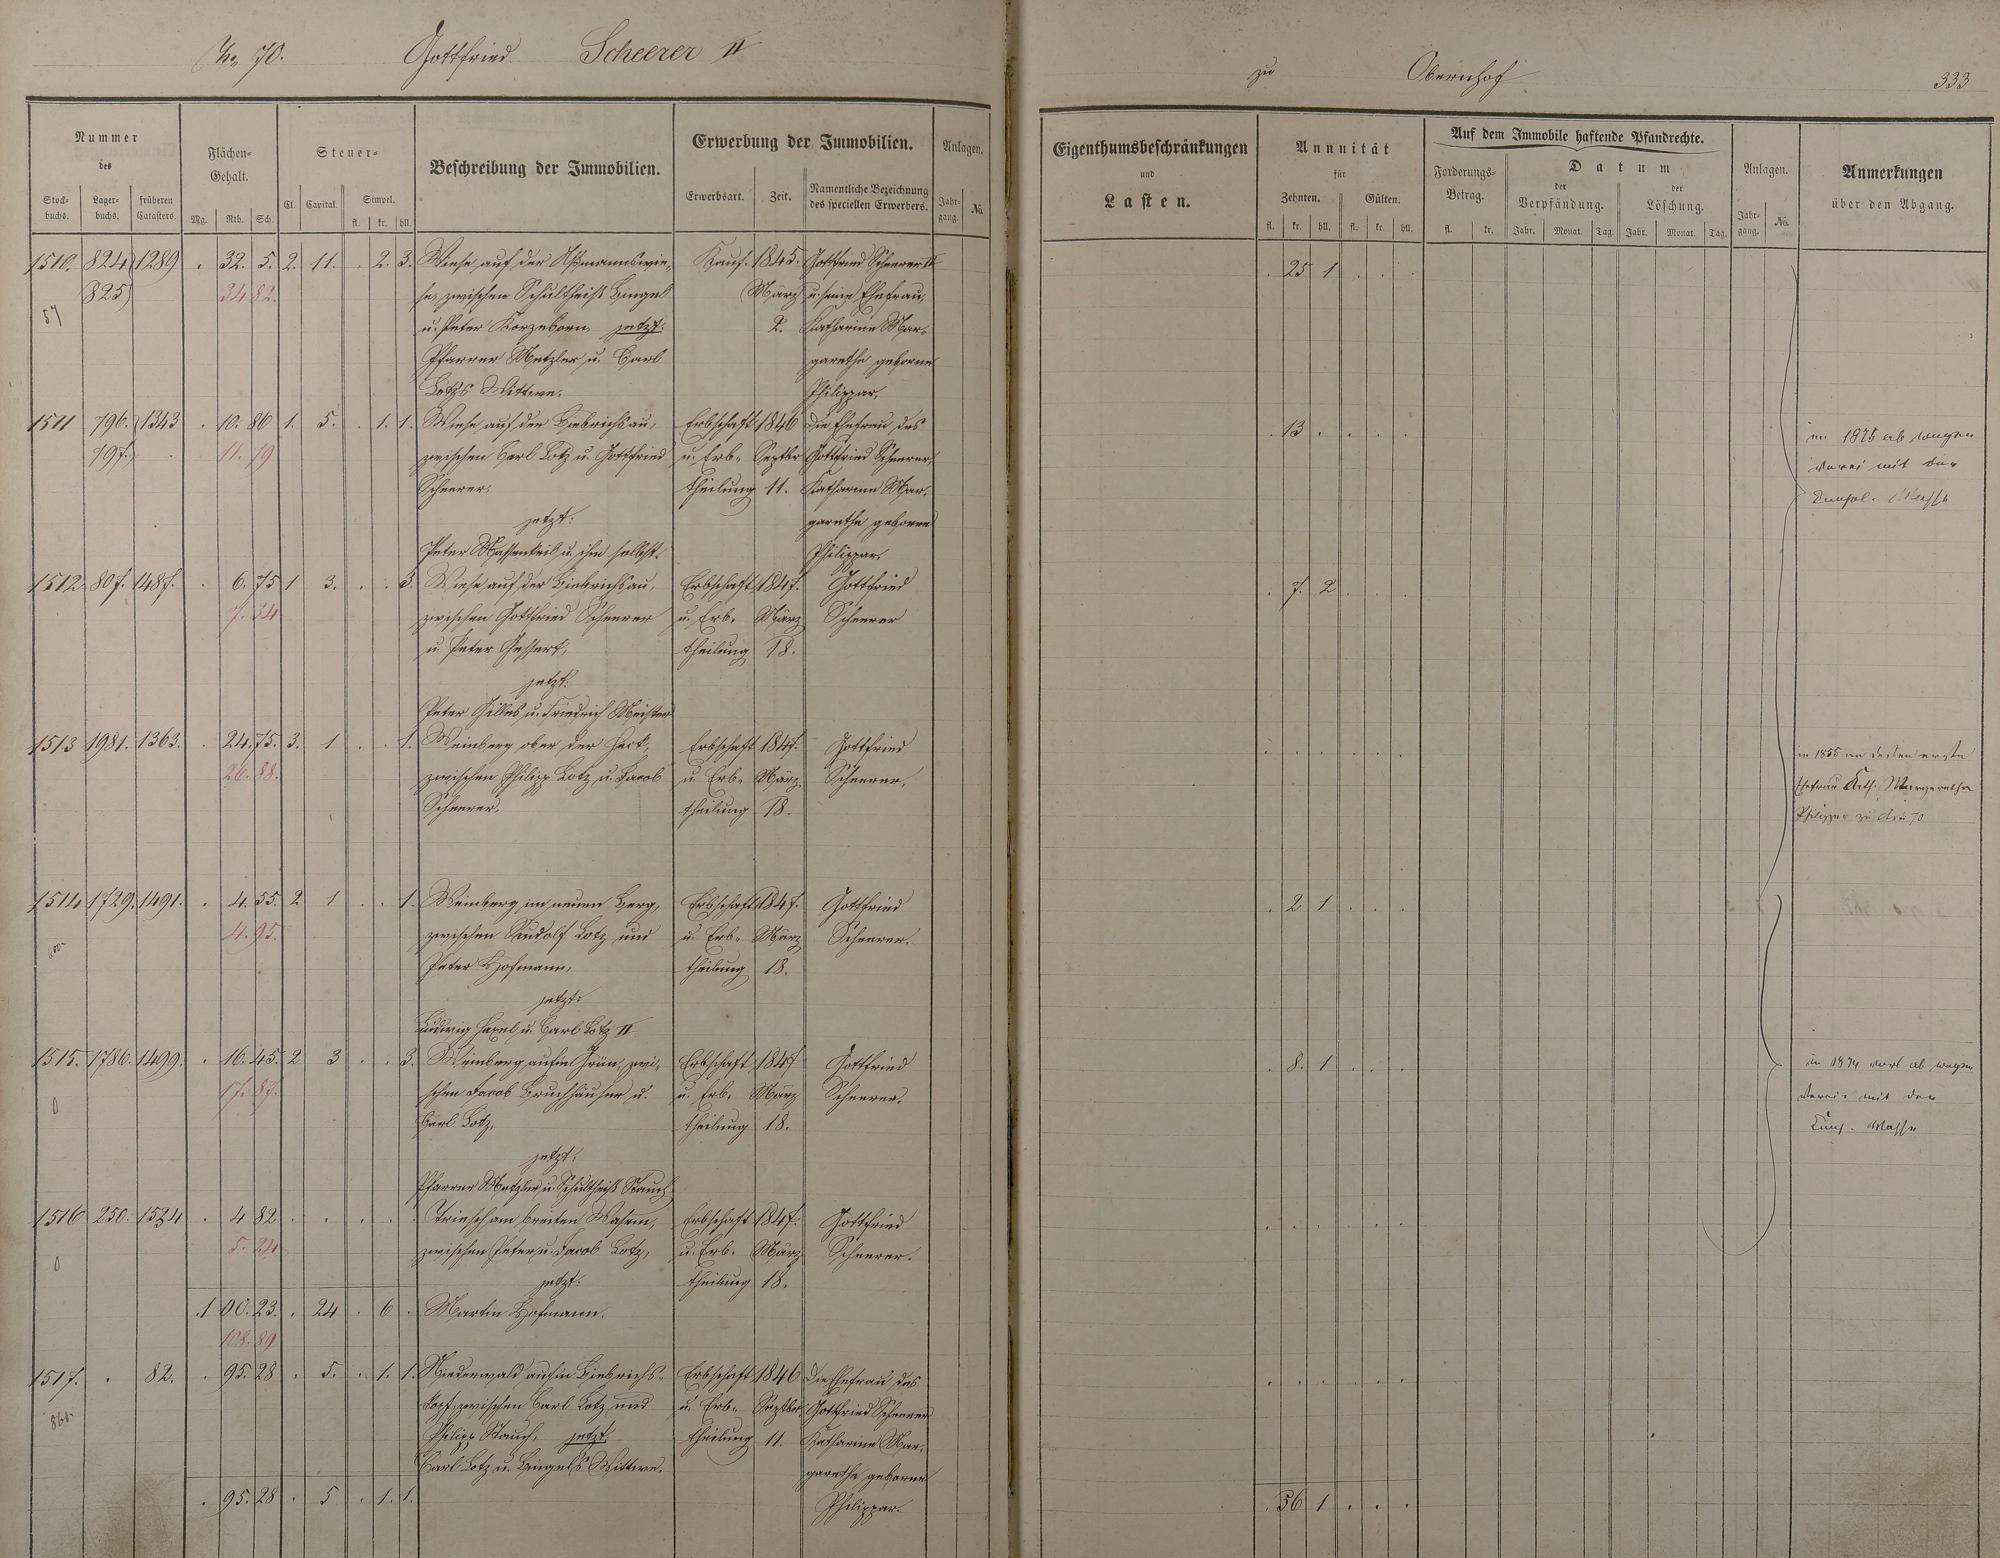 No 70. Gottfried Scheerer II
zu Obernhof 333
Nummer des
Stock-buchs. Lager-buchs. früheren Catasters.
Flächen-Gehalt.
Mg. Rth. Sch.
Steuer-
Cl. Capital. Simpel.
fl. kr. hll.
Beschreibung der Immobilien.
Erwerbung der Immobilien.
Erwerbsart. Zeit. Namentliche Bezeichnung des speciellen Erwerbers.
Anlagen.
Jahr-gang. No.
Eigenthumsbeschränkungen
und
Lasten.
Annuität
für
Zehnten. Gülten.
fl. kr. hll. fl. kr. hll.
Auf dem Immobile haftende Pfandrechte.
Forderungs-Betrag.
fl. kr.
Datum
der Verpfändung. der Löschung.
Jahr. Monat. Tag. Jahr. Monat. Tag.
Anlagen.
Jahr-gang. No.
Anmerkungen
über den Abgang.
1510. 824) 1289 . 32. 5. 2. 11. . 2. 3. Wiese auf der Aßmannswie- Kauf. 1845. Gottfried Scheerer II . 25 1 . . .
825) 34 82. se, zwischen Schultheiß Hingel März u. seine Ehefrau,
57 u. Peter Korzeborn, jetzt: 2. Katharine Mar-
Pfarrer Metzler u. Carl garethe geborne
Lotz's Wittwe. Philippar.
1511 796.) 1343 . 10. 86 1. 5. . 1. 1. Wiese auf der Hiebrichsau, Erbschaft 1846 Die Ehefrau des . 13 . . . .
797.) 11. 79 zwischen Carl Lotz u. Gottfried u. Erb- Septbr Gottfried Scheerer,
Scheerer, theilung 11. Katharine Mar-
jetzt: garethe geborne
Peter Massenkeil u. ihm selbst. Philippar.
in 1875 ab wegen
mit der
Masse
1512 807. 1487. . 6. 75 1 3. . . 3. Wiese auf der Hiebrichsau, Erbschaft 1847. Gottfried . 7. 2 . . .
7. 34 zwischen Gottfried Scheerer u. Erb- März Scheerer
u. Peter Gessert, theilung 18.
jetzt:
Peter Gilles u. Friedrich Meister
1513 1981. 1363. . 24. 75. 3. 1 . . 1. Weinberg ober der Heck, Erbschaft 1847. Gottfried . . . . . .
26. 88. zwischen Philipp Lotz u. Jacob u. Erb- März Scheerer.
Scheerer. theilung 18.
in 1855 an dessen erste
Ehefrau Cath. Margarethe
Philippar zu Art. 70
1514 1729. 1491. . 4. 55. 2 1 . . 1 Weinberg im neuen Berg, Erbschaft 1847. Gottfried . 2 1 . . .
4. 95. zwischen Rudolf Lotz und u. Erb- März Scheerer.
Peter Hofmann, theilung 18.
jetzt:
Ludwig Haxel u. Carl Lotz II
1515. 1786. 1499. . 16. 45. 2 3 . . 3. Weinberg auf'm Grün, zwi- Erbschaft 1847 Gottfried . 8. 1 . . .
17. 87. schen Jacob Bruchhäuser u. u. Erb- März Scheerer.
0 Carl Lotz, theilung 18.
jetzt:
Pfarrer Metzler u. Schultheiß Stauch
in 1874 ab wegen
mit der
Masse
1516 250. 1524 . 4 82 . . . . . Triesch am breiten Wasem, Erbschaft 1847. Gottfried . . . . . .
5. 24 zwischen Peter u. Jacob Lotz, u. Erb- März Scheerer.
0 jetzt: theilung 18.
.1 00. 23. . 24 . 6 . Martin Hofmann.
108. 89
1517. . 82. . 95. 28 . 5. . 1. 1. Niederwald auf'm Hiebrichs- Erbschaft 1846 Die Ehefrau des . . . . . .
kopf, zwischen Carl Lotz und u. Erb- Septbr. Gottfried Scheerer
Philipp Stauch, jetzt: theilung 11. Katharine Mar-
Carl Lotz u. Hingel's Wittwe. garethe geborne
. 95. 28 . 5 . 1. 1. Philippar.
. 56 1 . . .